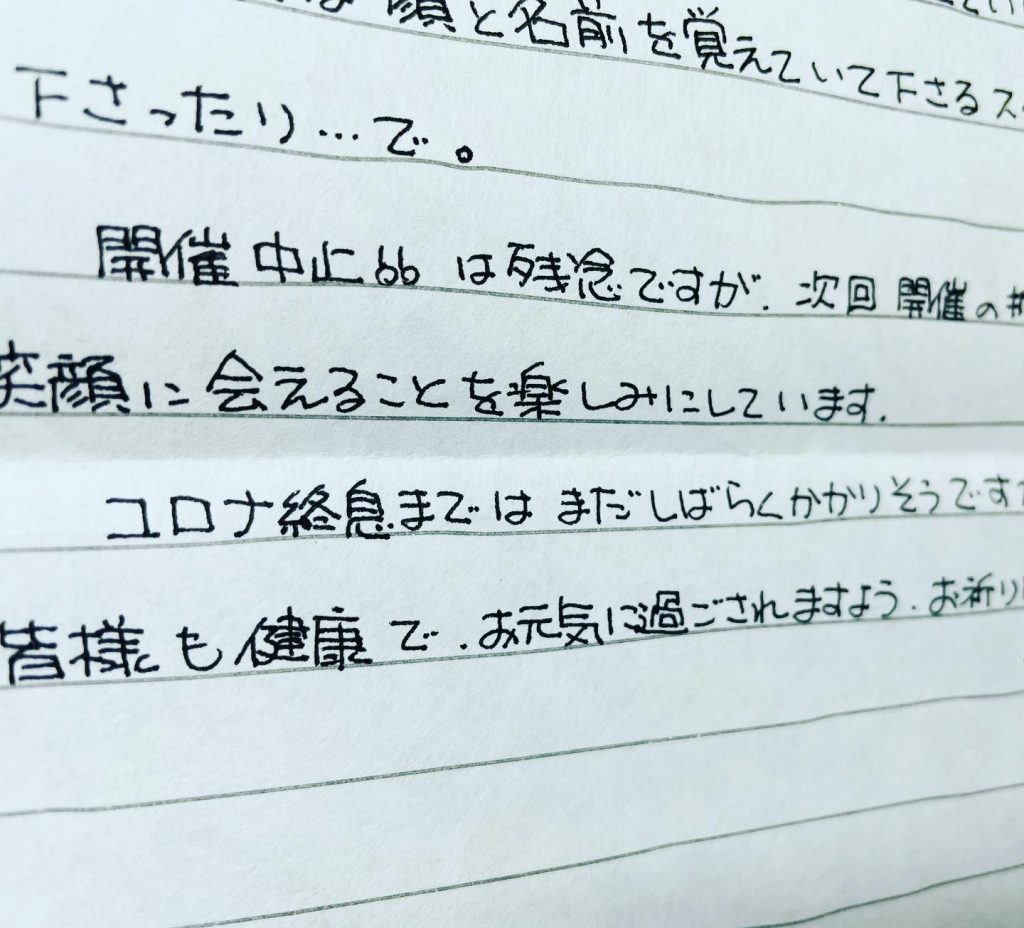 顔と名前を覚えていて下さるス
下さったり…で。
開催中止は残念ですが、次回開催の
笑顔に会えることを楽しみにしています。
コロナ終息まではまだしばらくかかりそうです
皆様も健康で、お元気に過ごされますよう、お祈り